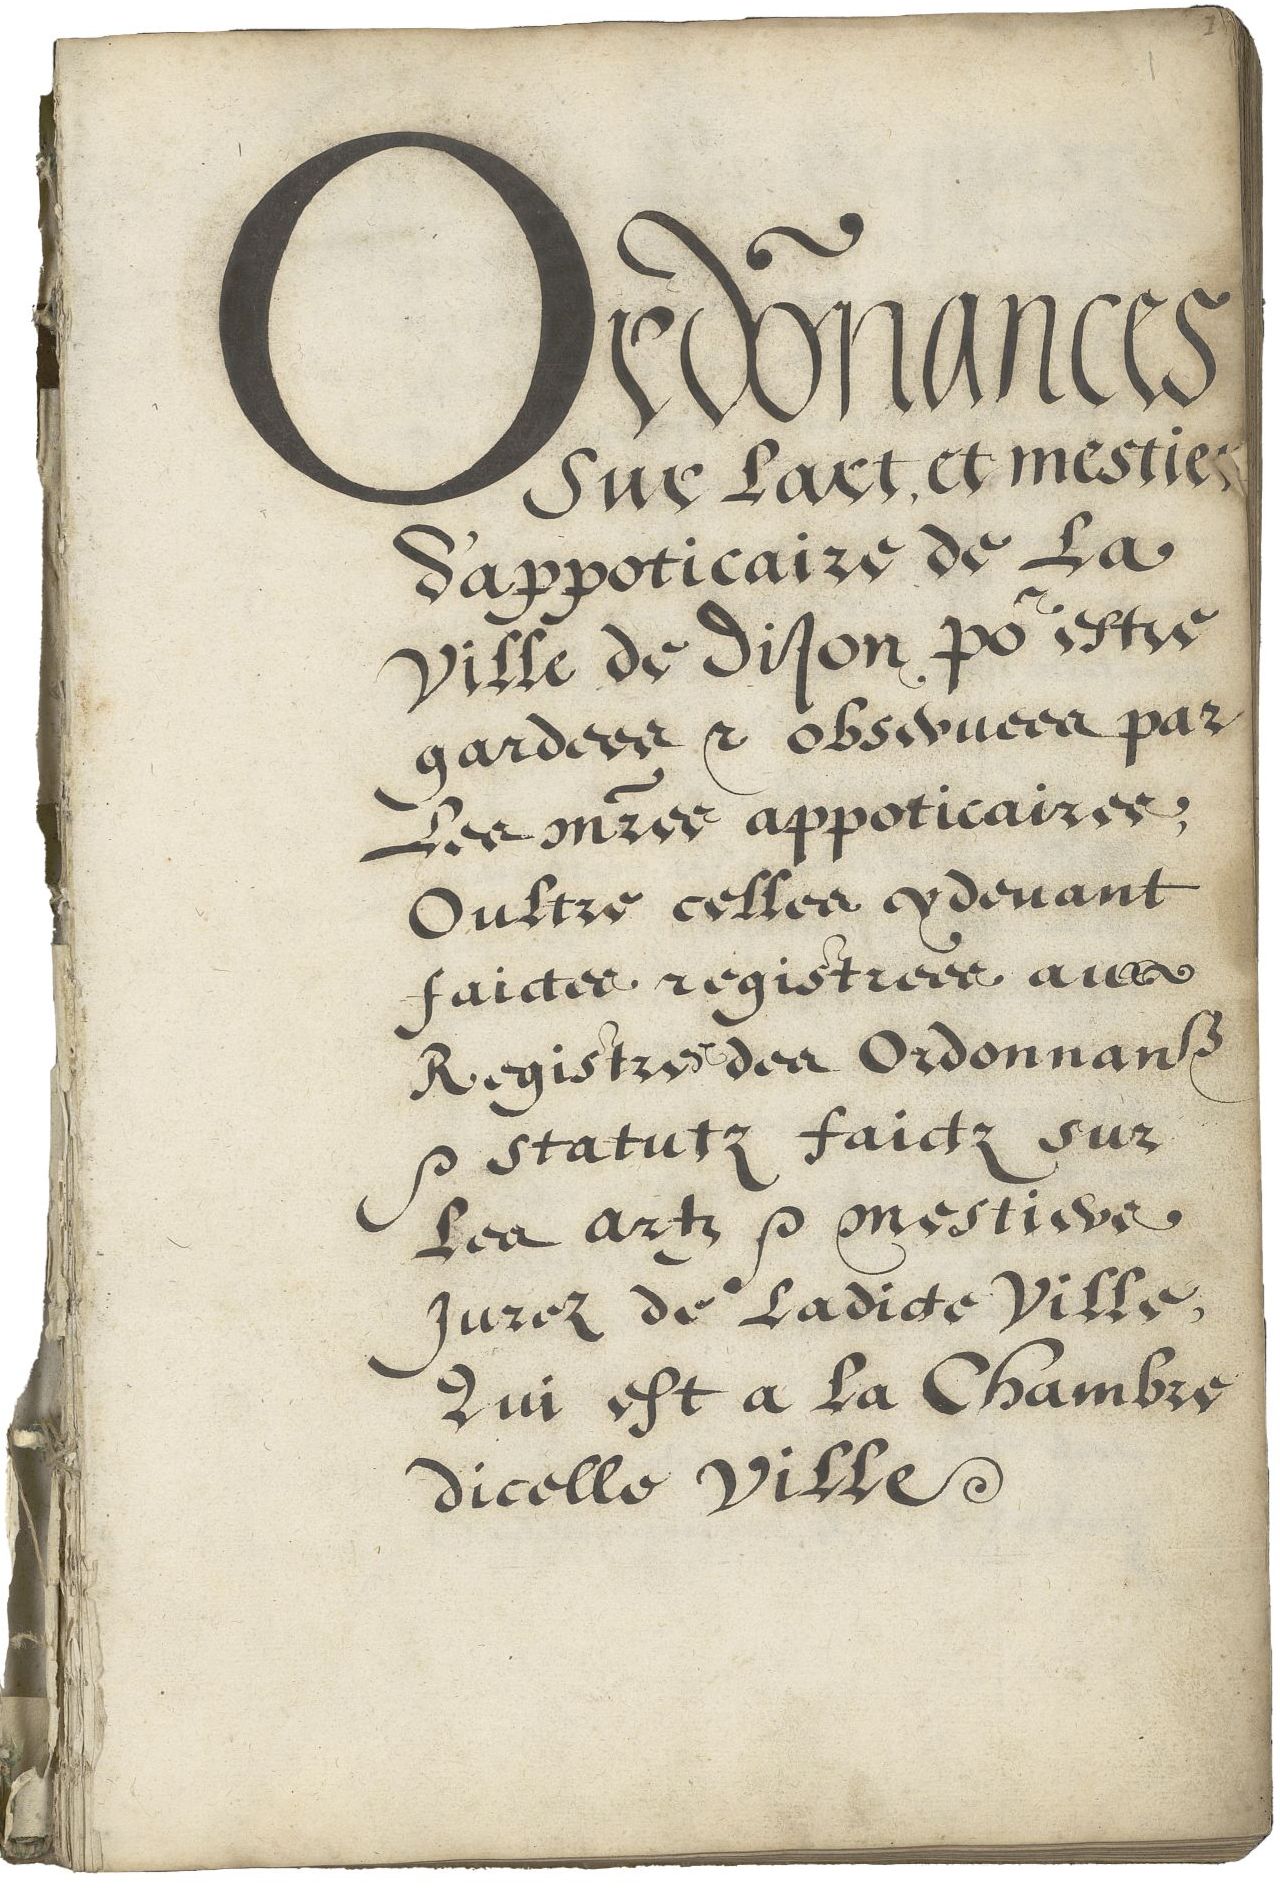 1
1
Ordõnances
Sur Lart, et mestier
d'appoticaire de La
Ville de Dijon po^r estre
gardees & obseruees par
Les mr̃es appoticaires,
Oultre celles cydeuant
faictes registrees aux
Registres des Ordonnanses
& statutz faictz sur
Les artz & mestiers
Jurez de Ladicte Ville,
Qui est a La Chambre
dicelle Ville